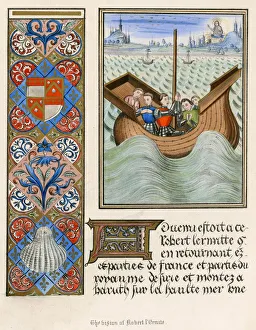 Advenu estoit a ce
Robert lermitte q̃
en retournant es
parties de france et parti du
royaume de surie et montez a
baruth sur la haulte mer une
The vision of Robert l'Ermite